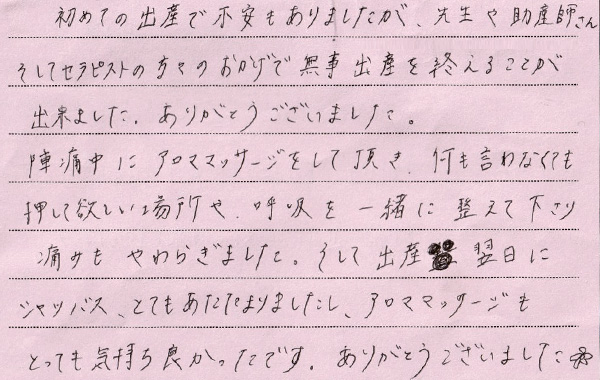 初めての出産で不安もありましたが、先生や助産師さん
そしてセラピストの方々のおかげで無事出産を終えることが
出来ました。ありがとうございました。
陣痛中にアロママッサージをして頂き、何も言わなくても
押して欲しい場所や、呼吸を一緒に整えて下さり
痛みもやわらぎました。そして出産 翌日に
シャツバス、とてもあたたまりましたし、アロママッサージも
とっても気持ち良かったです。ありがとうございました